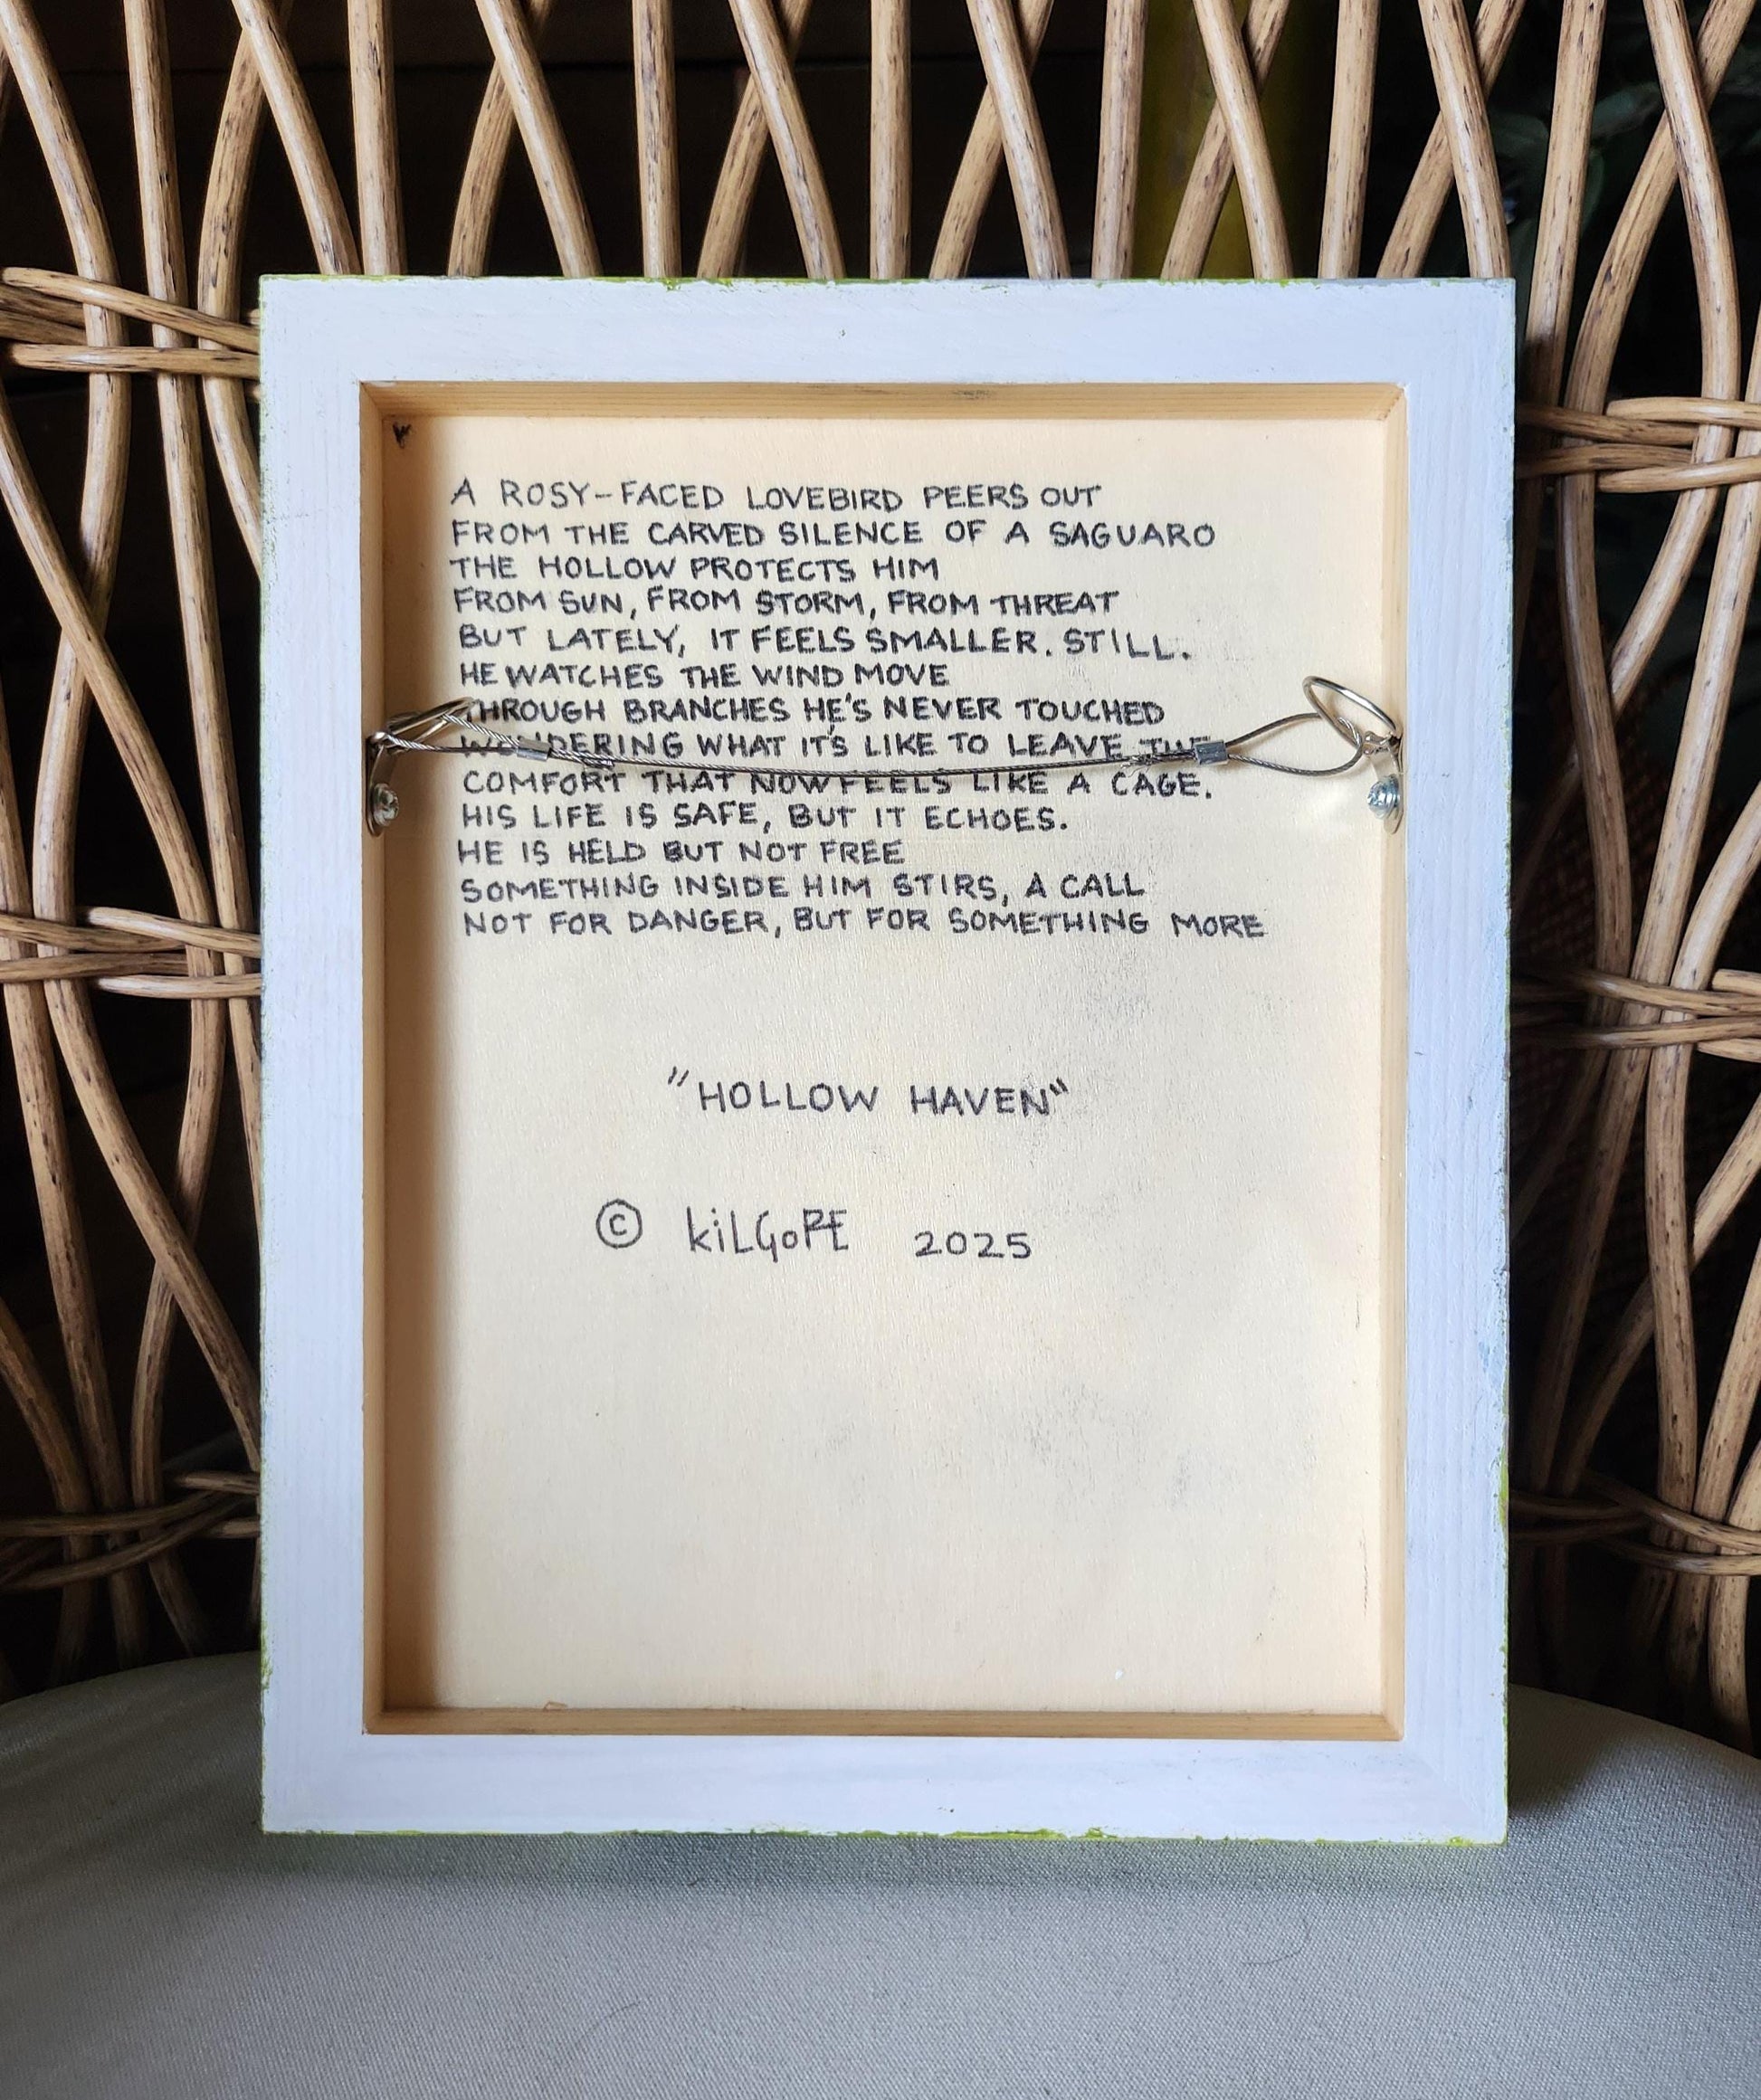 A ROSY-FACED LOVEBIRD PEERS OUT
FROM THE CARVED SILENCE OF A SAGUARO
THE HOLLOW PROTECTS HIM
FROM SUN, FROM STORM, FROM THREAT
BUT LATELY, IT FEELS SMALLER. STILL.
HE WATCHES THE WIND MOVE
THROUGH BRANCHES HE'S NEVER TOUCHED
WONDERING WHAT IT'S LIKE TO LEAVE THE
COMFORT THAT NOW FEELS LIKE A CAGE.
HIS LIFE IS SAFE, BUT IT ECHOES.
HE IS HELD BUT NOT FREE
SOMETHING INSIDE HIM STIRS, A CALL
NOT FOR DANGER, BUT FOR SOMETHING MORE
"HOLLOW HAVEN"
© KiLGoRE 2025